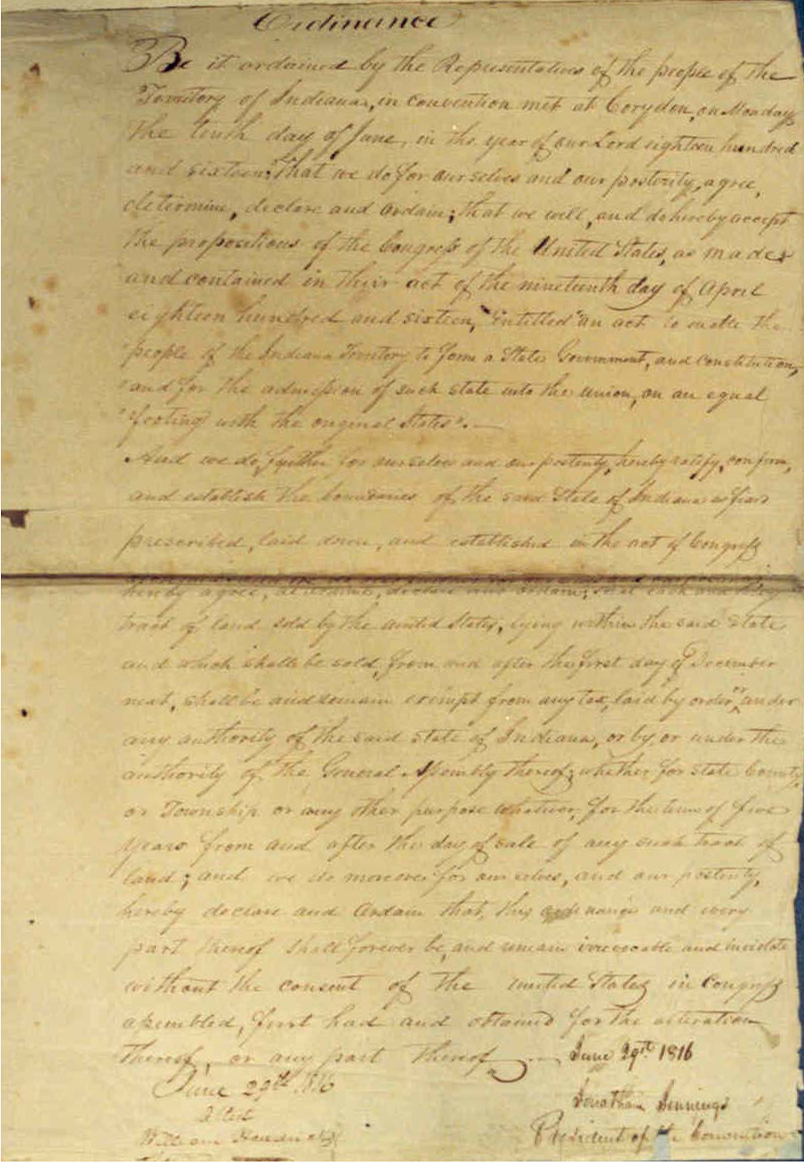 Ordinance
Be it ordained by the Representatives of the people of the
Territory of Indiana, in convention met at Corydon, on Monday
the tenth day of June, in the year of our Lord eighteen hundred
and sixteen; that we do for ourselves and our posterity, agree,
determine, declare and ordain; that we will, and do hereby accept
the propositions of the Congress of the United States, as made
and contained in their act of the nineteenth day of April
eighteen hundred and sixteen, "entitled "an act to enable the
"people of the Indiana Territory to form a State Government, and constitution,
"and for the admission of such state into the union, on an equal
"footing with the original States". —
And we do, further for ourselves and our posterity, hereby ratify, confirm,
and establish the boundaries of the said State of Indiana as fixed
prescribed, laid down, and established in the act of Congress
hereby agree, determine, declare and ordain; that each and every
tract of land sold by the United States, lying within the said State
and which shall be sold, from and after the first day of December
next, shall be and remain exempt from any tax, laid by order, or under
any authority of the said state of Indiana, or by, or under the
authority of the General Assembly thereof; whether for state County,
or Township or any other purpose whatever, for the term of five
years from and after the day of sale of any such tract of
land; and we do moreover for ourselves, and our posterity,
hereby declare and ordain that, this ordinance and every
part thereof shall forever be, and remain irrevocable and inviolate
without the consent of the united States in Congress
assembled, first had and obtained for the alteration
thereof, or any part thereof — June 29th 1816
June 29th 1816
Attest
Jonathan Jennings
William Hendricks
President of the Convention